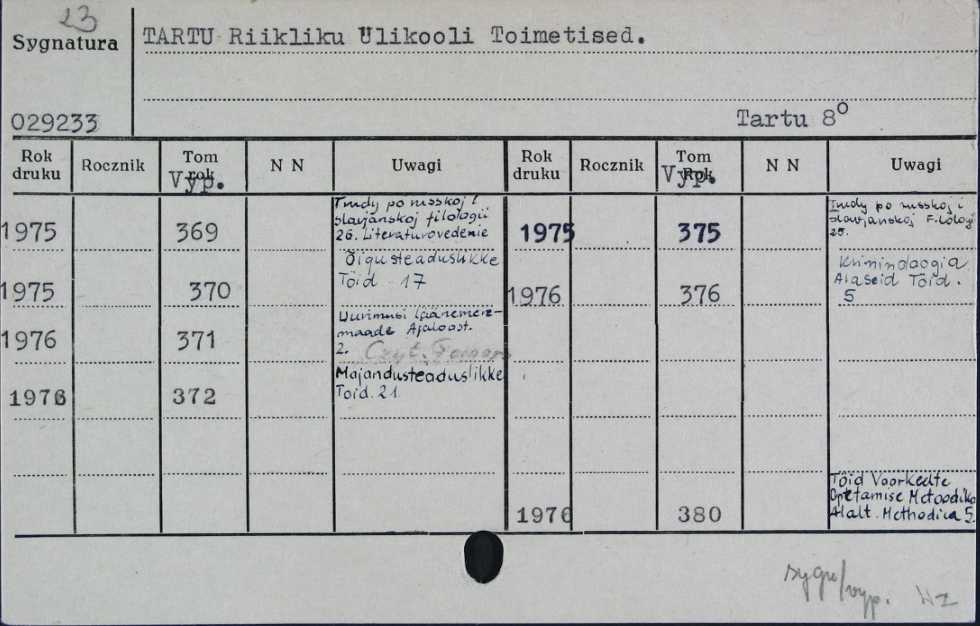 23
Sygnatura
TARTU Riikliku Ulikooli Toimetised.
029233
Tartu 8º
Rok druku Rocznik Tom rok Vyp. N N Uwagi Rok druku Rocznik Tom Rok Vyp. N N Uwagi
1975 369 Trudy po russkoj i
slavjanskoj filologii
26. Literaturovedenie
1975 370 Õigusteaduslikke
Töid 17
1976 371 Uurimusi Läänemere-
maade Ajaloost.
2. Czyt.
1976 372 Majandusteaduslikke
Toid. 21
1975 375 Trudy po russkoj i
slavjanskoj Filologi
25.
1976 376
Alaseid Töid.
5
1976 380 Töid Voorkeelte
Opetamise Metoodika
Alalt. Methodica 5
sygn/vyp.